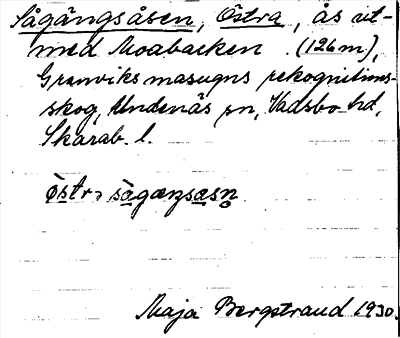 Sågängsåsen, Östra, ås ut-
med Moabacken (126 m),
Granviks masugns rekognitions-
skog, Undenäs sn, Vadsbo hd,
Skarab. l.
östra sågæŋsåsn̥
Maja Bergstrand 1930.